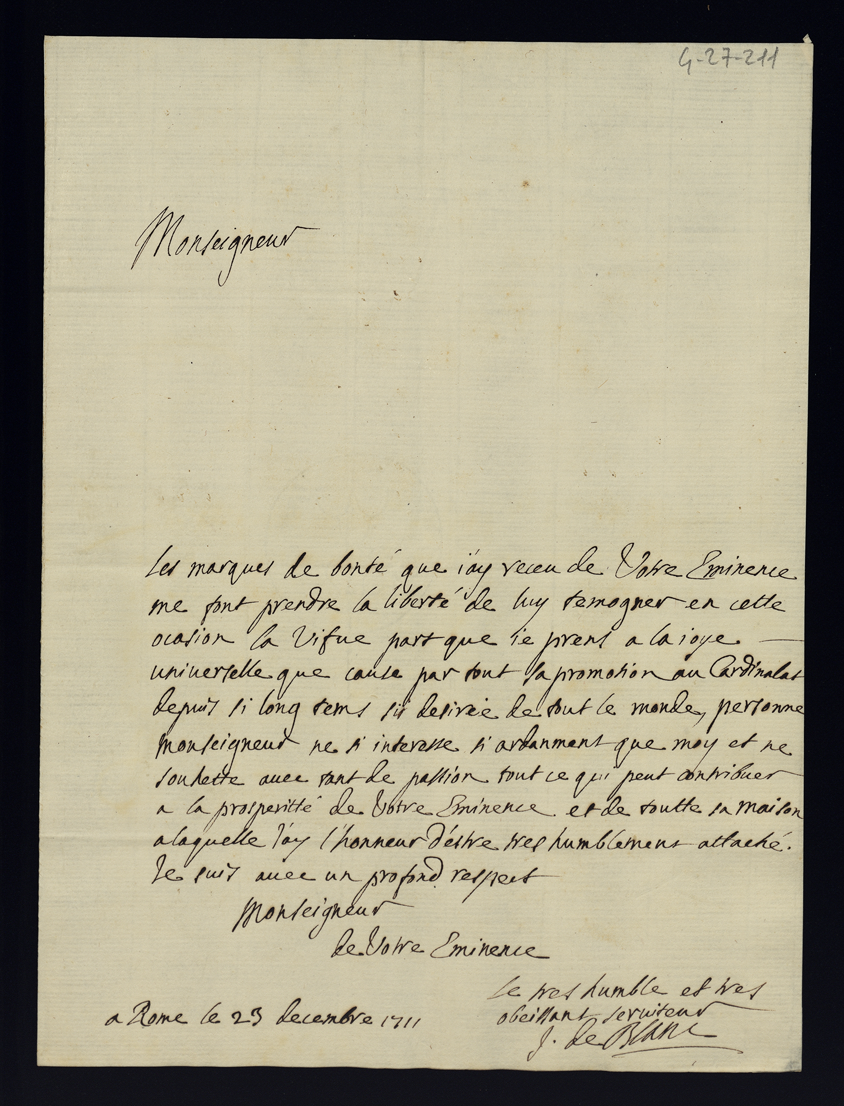 G-27-211
Monseigneur
Les marques de bonté que i'ay receu de Votre Eminence
me font prendre la liberté de luy temogner en cette
ocasion la vifue part que ie prens a la ioye
universelle que cause par tout sa promotion au Cardinalat
depuis si long tems si desireé de tout le monde, personne
Monseigneur ne si interesse si ardanment que moy et ne
souhette auec tant de passion tout ce qui peut contribuer
a la prosperitté de Votre Eminence et de toutte sa maison
a laquelle i'ay l'honneur d'éstre tres humblement attaché.
Je suis auec un profond respect
Monseigneur
de Votre Eminence
Le tres humble et tres
obeissant seruiteur
a Rome le 23 decembre 1711
J. de Blanc